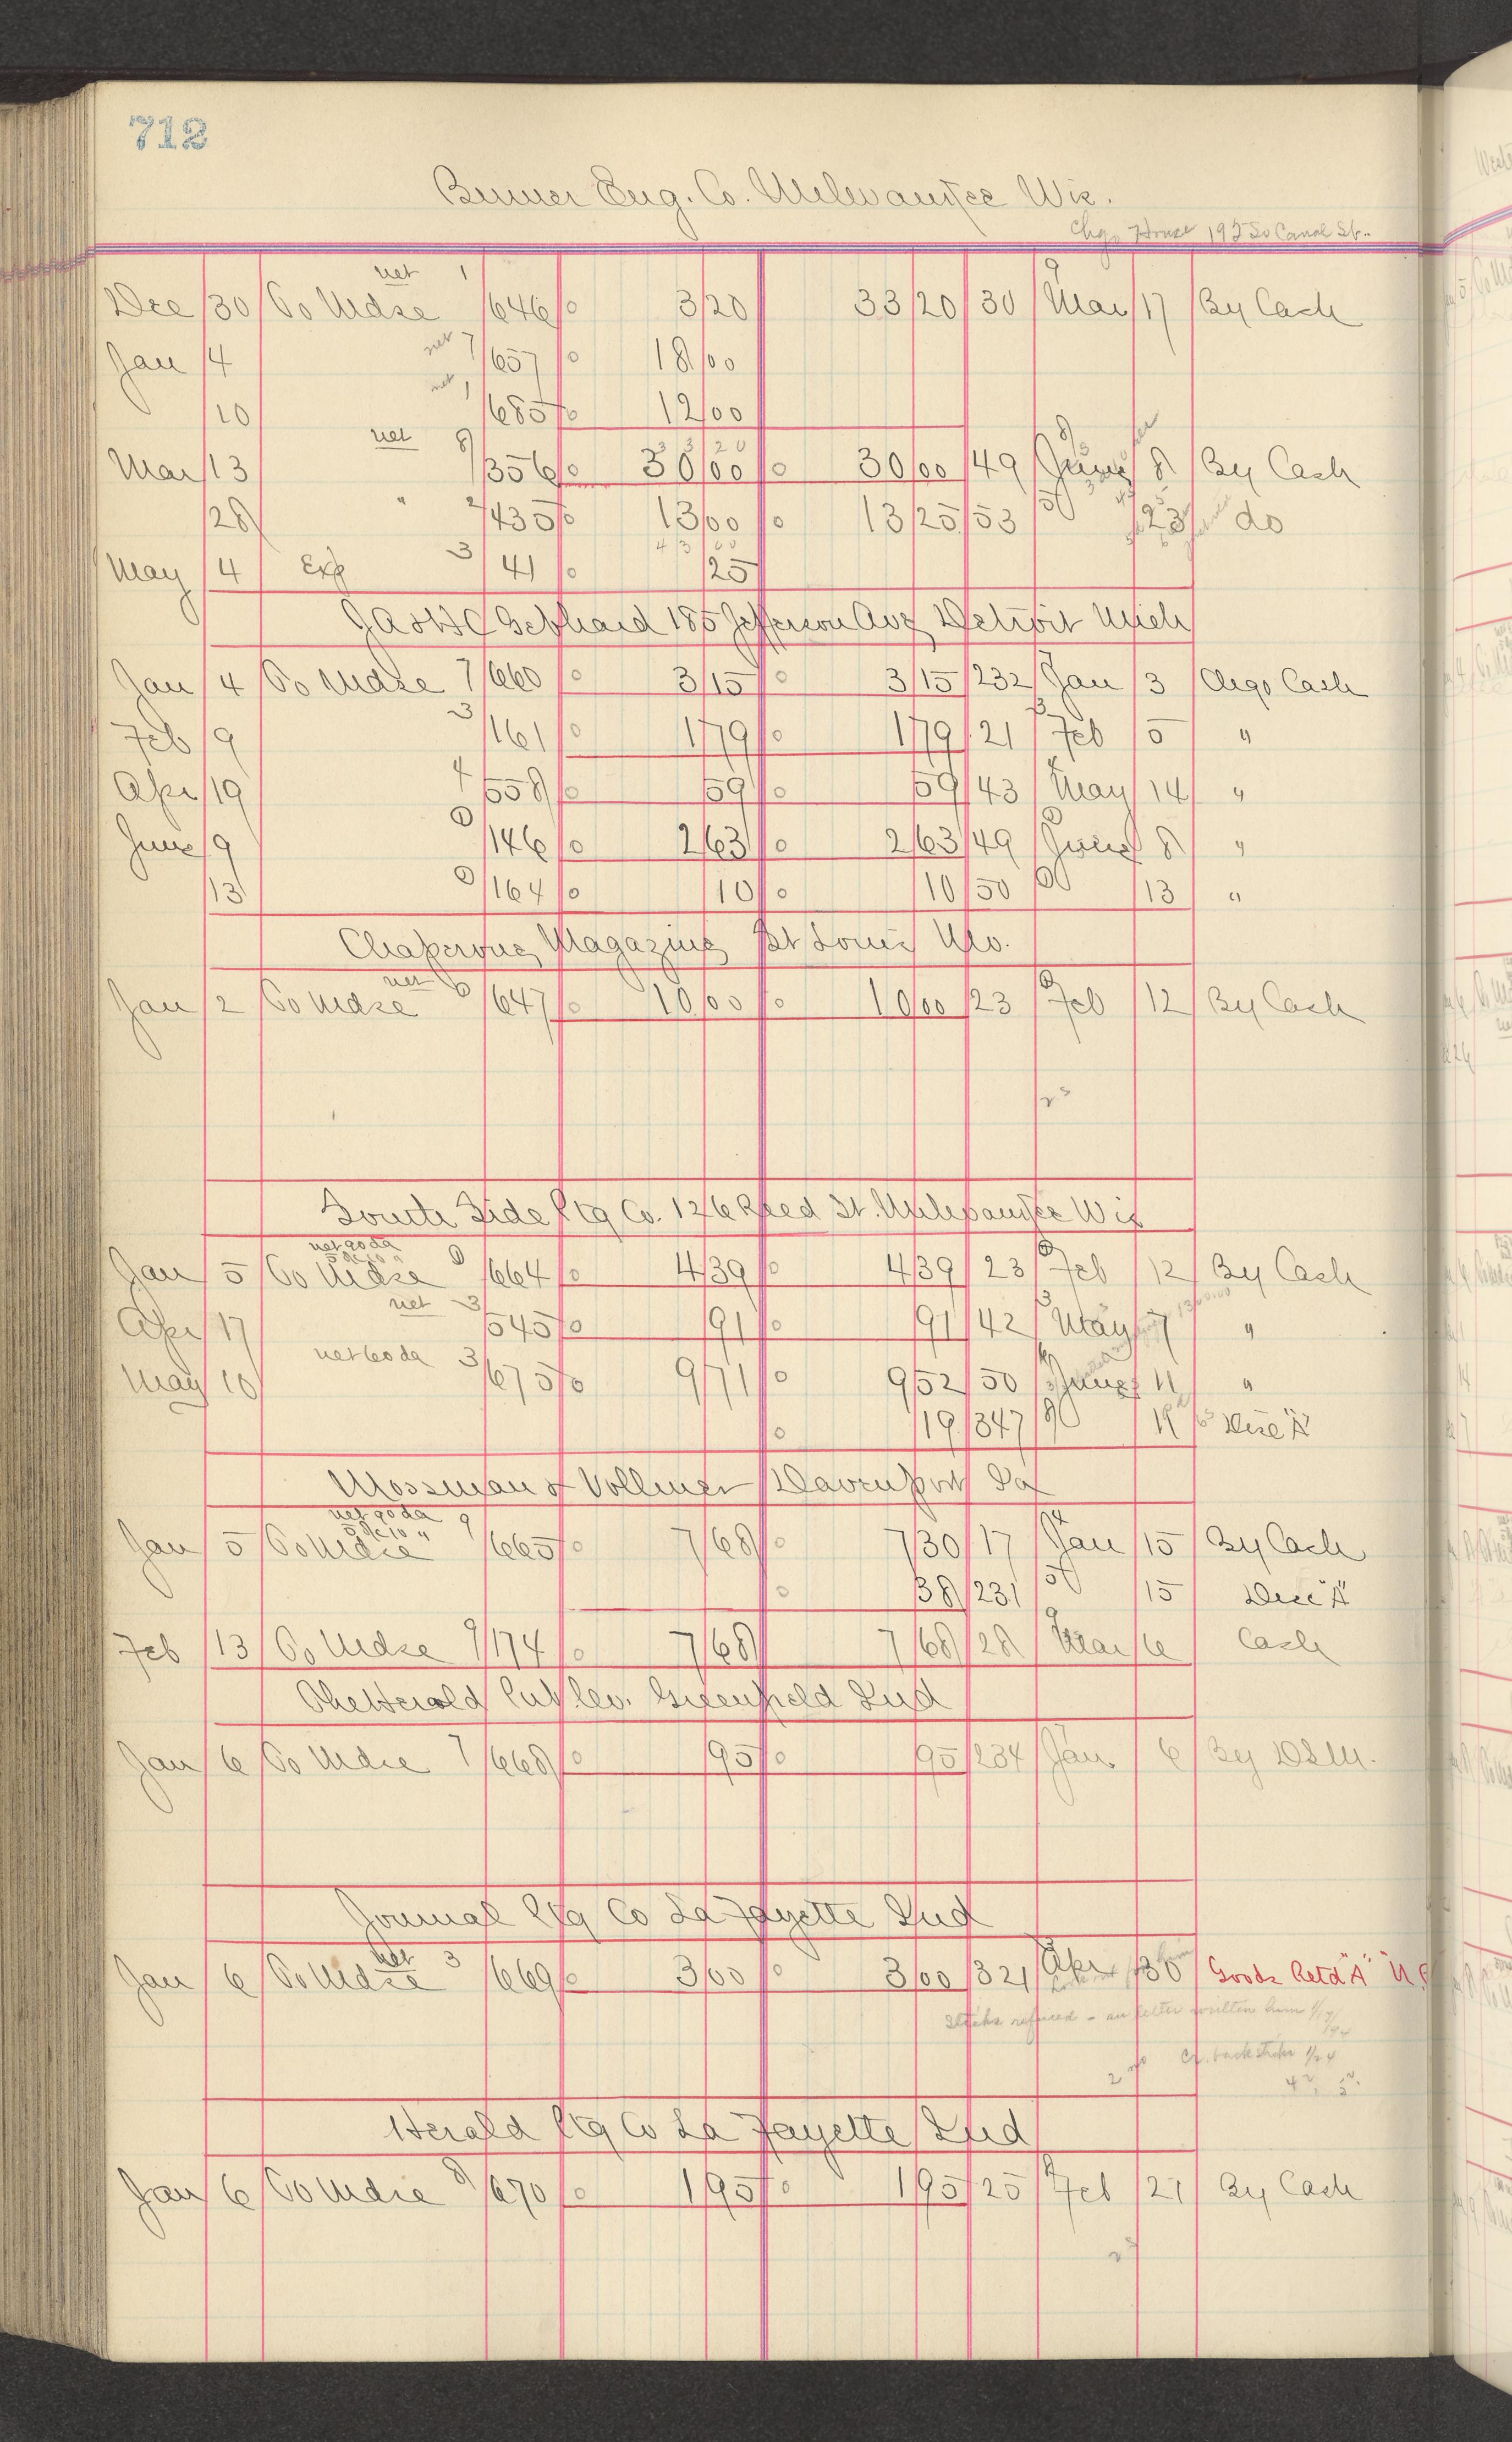 712
Binner Eng. Co. Milwaukee Wis.
Chgo House 195 So Canal St.
net 1 9
Dec 30 To Mdse 646 3 20 33 20 30 Mar 17 By Cash
Jan 4 net 7 657 18 00
10 net 1 685 12 00
3 3 2 0
Mar 13 net 8 356 30 00 30 00 49 June 8 By Cash
28 " 2 435 13 00 13 25 53 23 do
4 3 00
May 4 Exp 3 41 25
J A & H C Gebhard 185 Jefferson Ave Detroit Mich
Jan 4 To Mdse 7 660 3 15 3 15 232 Jan 3 Chgo Cash
Feb 9 3 161 1 79 1 79 21 Feb 5 "
Apr 19 4 558 59 59 43 May 14 "
June 9 146 2 63 2 63 49 June 8 "
13 164 10 10 50 13 "
Chaperone Magazine St Louis Mo.
Jan 2 To Mdse net 6 647 10 00 10 00 23 Feb 12 By Cash
South Side Ptg Co. 126 Reed St. Milwaukee Wis
net 90 da
5 % 10 "
Jan 5 To Mdse 664 4 39 4 39 23 Feb 12 By Cash
Apr 17 net 3 545 91 91 42 May 7 "
May 10 net 60 da 3 675 9 71 9 52 50 June 11 "
19 347 19 Disc "A"
Mossman & Vollmer Davenport Ia
net 90 da
5 % 10 "
Jan 5 To Mdse 9 665 7 68 7 30 17 Jan 15 By Cash
38 231 15 Disc "A"
Feb 13 To Mdse 9 174 7 68 7 68 28 Mar 6 Cash
The Herald Pub Co. Greenfield Ind
Jan 6 To Mdse 7 668 95 95 234 Jan 6 By
Journal Ptg Co La Fayette Ind
Jan 6 To Mdse net 3 669 3 00 3 00 321 Apr 30 Goods Retd "A"
Sticks refused - an letter written him 1/17/94
Cr. back sticks 1/24
Herald Ptg Co La Fayette Ind
Jan 6 To Mdse 8 670 1 95 1 95 25 Feb 21 By Cash